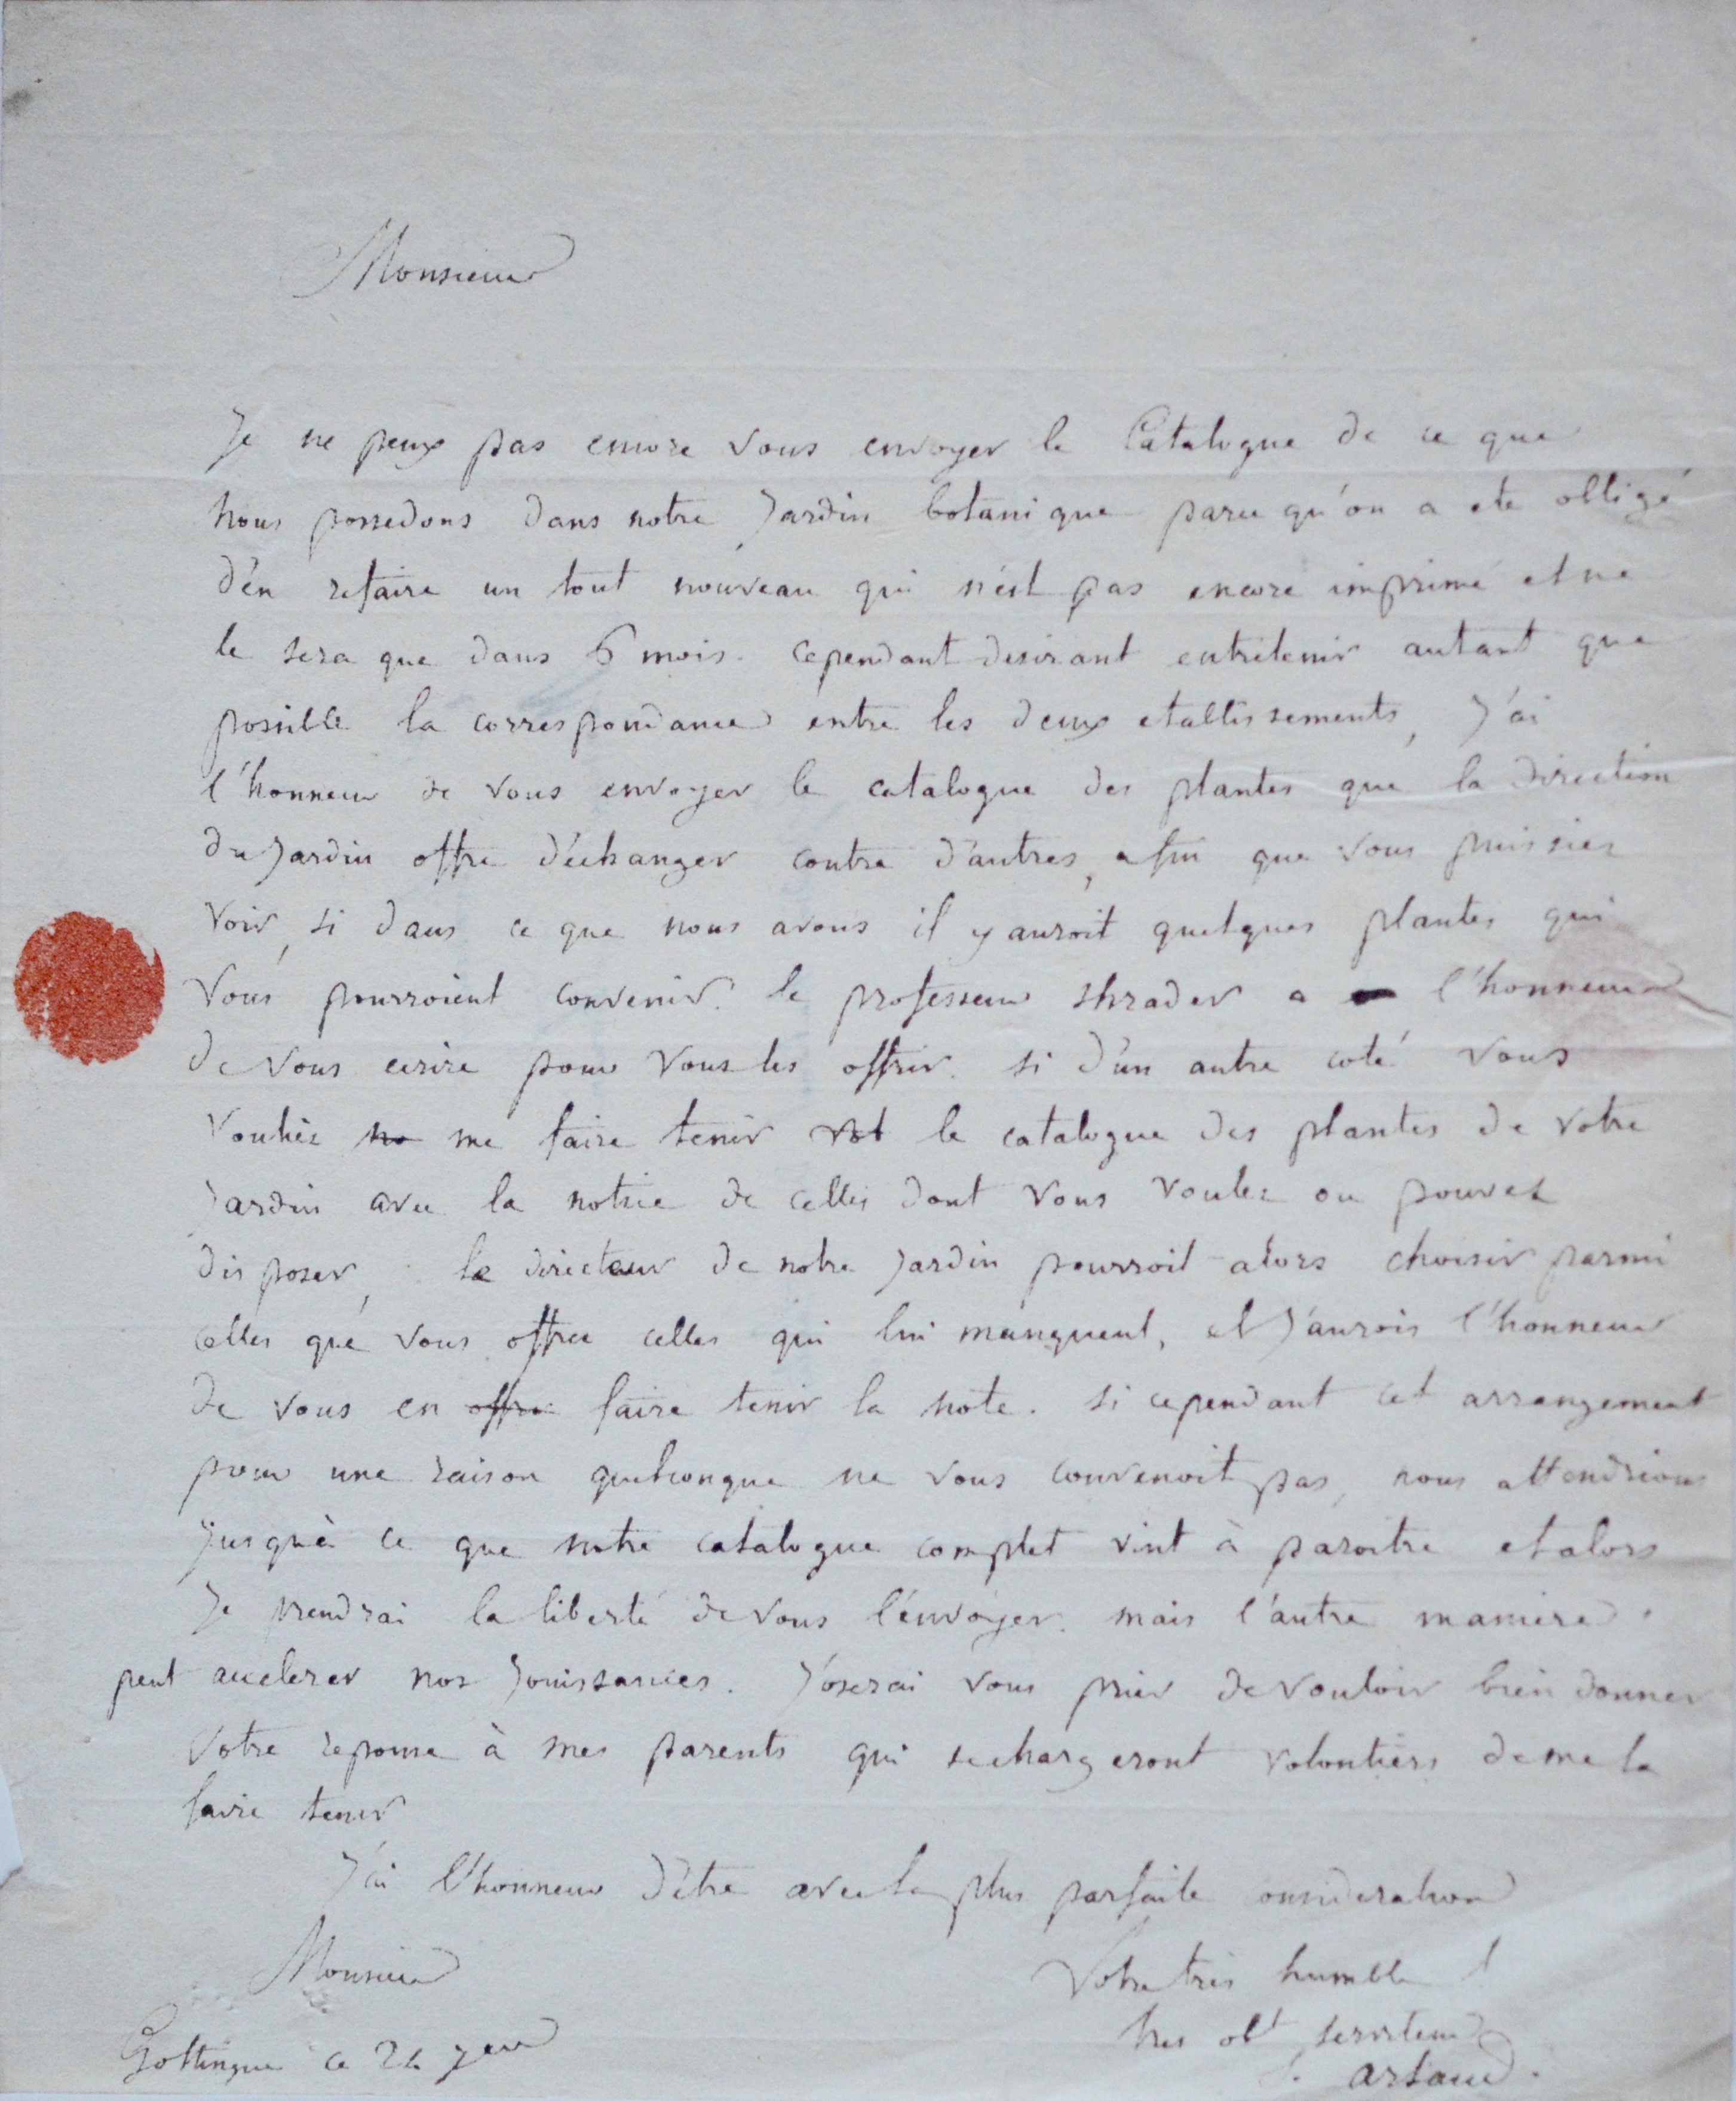 Monsieur
Je ne peux pas encore vous envoyer le Catalogue de ce que
nous possedons dans notre Jardin botanique parce qu'on a ete obligé
d'en refaire un tout nouveau qui n'est pas encore imprimé et ne
le sera que dans 6 mois. cependant desirant entretenir autant que
possible la correspondance entre les deux etablissements, J'ai
l'honneur de vous envoyer le catalogue des plantes que la direction
du Jardin offre d'échanger contre d'autres, afin que vous puissiez
voir, si dans ce que nous avons il y auroit quelques plantes qui
vous pourroient convenir. le professeur shrader a l'honneur
de vous ecrire pour vous les offrir. si d'un autre coté vous
vouliez no me faire tenir vot le catalogue des plantes de votre
Jardin avec la notice de celles dont vous voulez ou pouvez
disposer, le directeur de notre Jardin pourroit alors choisir parmi
celles que vous offrez celles qui lui manquent, et J'aurois l'honneur
de vous en offre faire tenir la note. si cependant cet arrangement
pour une raison quelconque ne vous convenoit pas, nous attendrions
Jusqu'à ce que notre catalogue complet vint à paroitre et alors
Je prendrai la liberté de vous l'envoyer. mais l'autre maniere
peut accelerer nos Jouissances. J'oserai vous prier de vouloir bien donner
votre reponse à mes parents qui se chargeront volontiers de me la
faire tenir
J'ai l'honneur d'être avec la plus parfaite consideration
Monsieur
Votre très humble
tres obt serviteur
artaud.
Gottingue ce